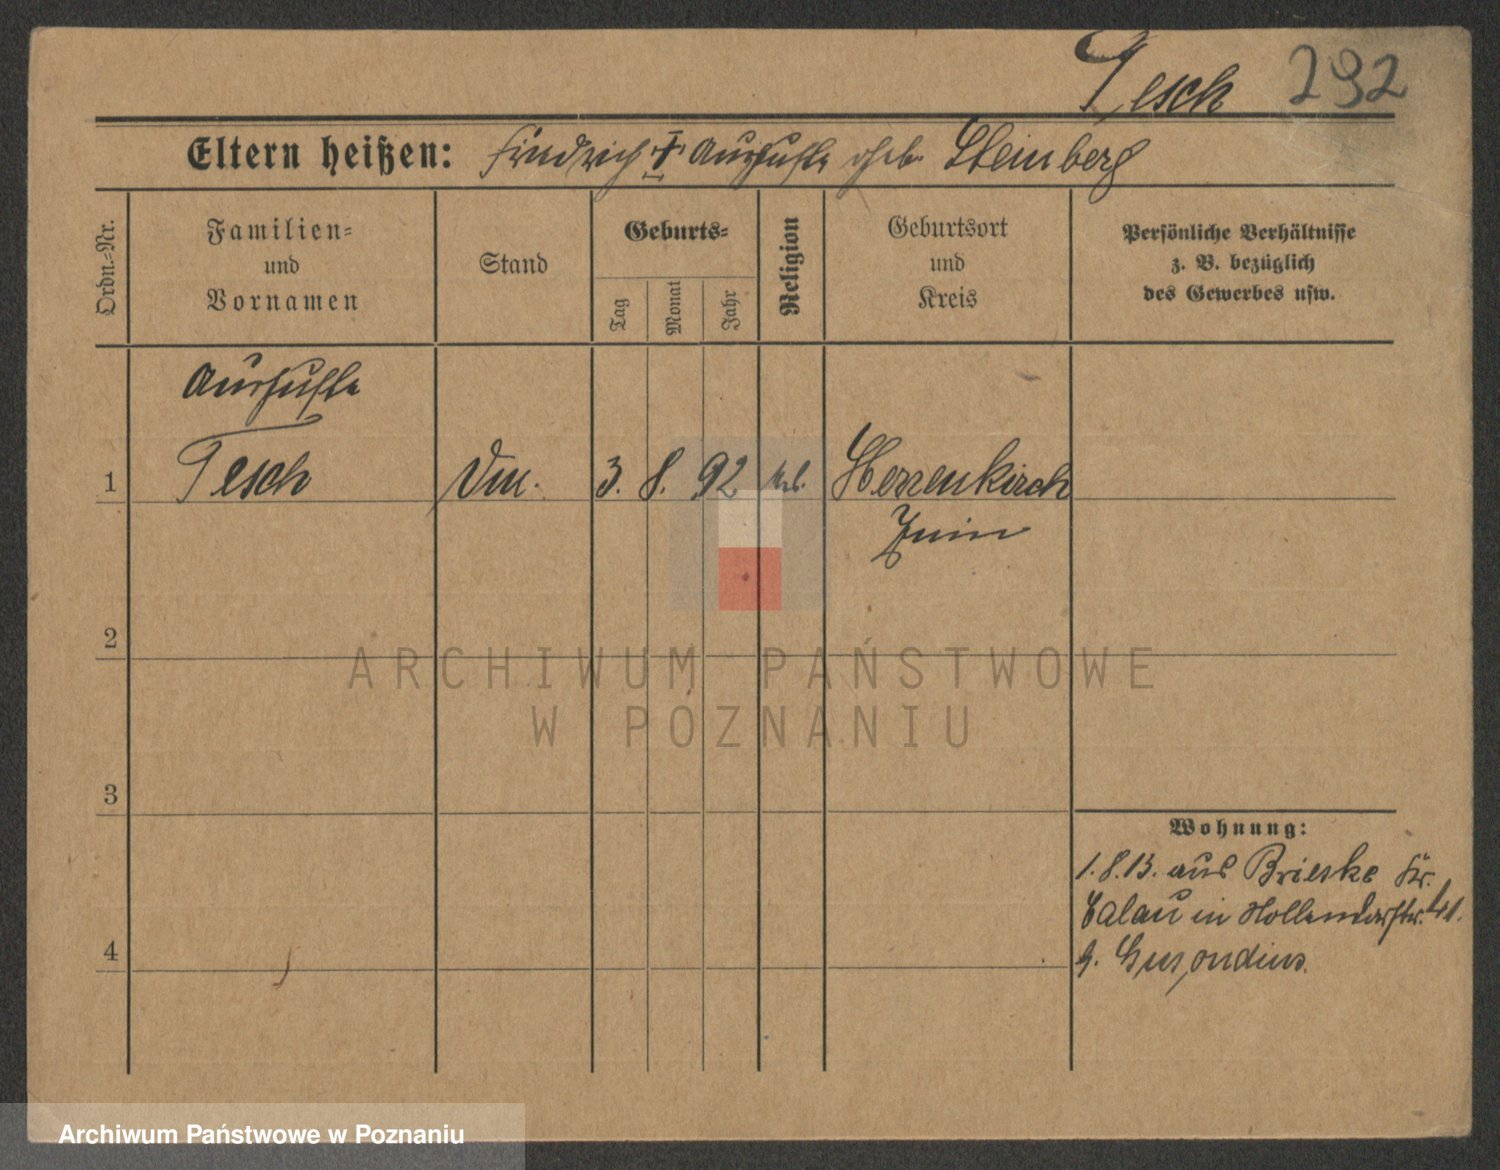 Tesch 292
Eltern heißen: Friedrich † Auguste geb. Steinberg
Ordn.-Nr.
Familien-
und
Vornamen
Stand
Geburts-
Tag
Monat
Jahr
Religion
Geburtsort
und
Kreis
Persönliche Verhältnisse
z. B. bezüglich
des Gewerbes usw.
Auguste
1 Tesch 3. 8. 92 Herrenkirch
Znin
2
ARCHIWUM PAŃSTWOWE
W POZNANIU
3
Wohnung:
1.8.13. aus Brieske Kr.
Calau in Hollendorfstr. 41.
4
Archiwum Państwowe w Poznaniu